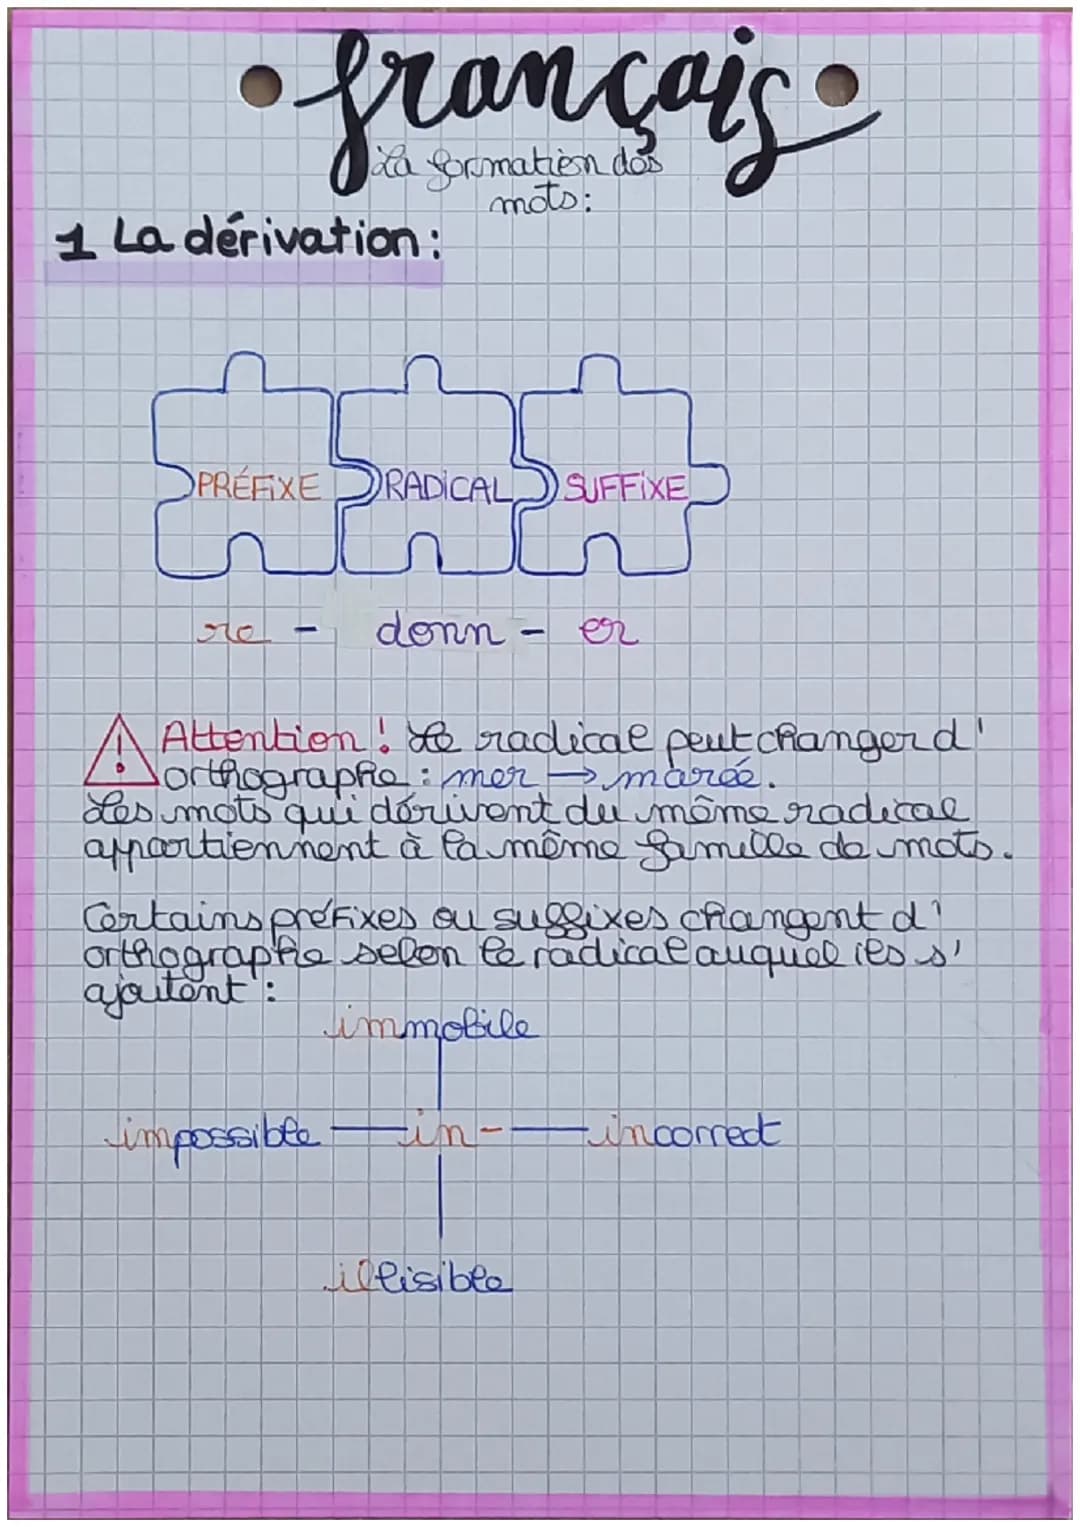 • français •
La formation des
mots:
1 La dérivation:
PRÉFIXE RADICAL SUFFIXE
re - donn - er
Attention ! Le radical peut changer d'
orthographe : mer → marée.
Les mots qui dérivent du même radical
appartiennent à la même famille de mots.
Certains préfixes ou suffixes changent d'
orthographe selon le radical auquel ils s'
ajoutent :
immobile
impossible — in- — incorrect
illisible